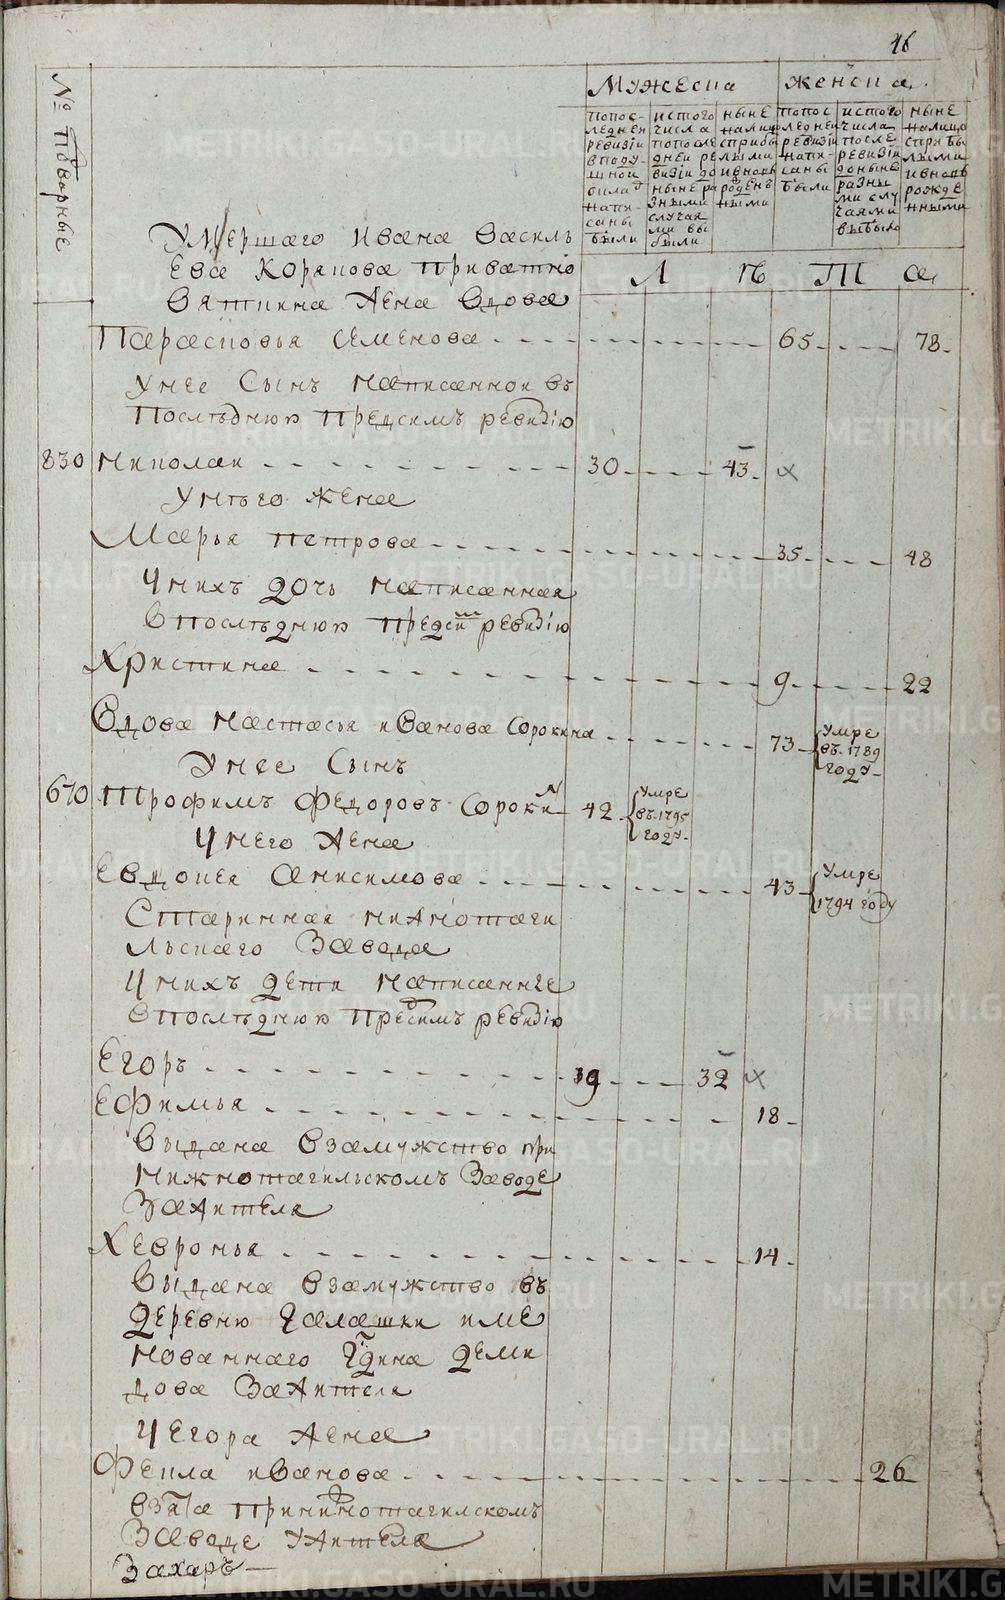 16
№ Подворные
мужеска
женска
попос-
ледней
ревизіи
вподу
шной
окладъ
напи-
саны
были
истого
числа
попосле
дней ре
визіи до
ныне ра
зными
случая
ми вы
были
ныне
налицо
сприбы
лыми
ивновь
рожден
ными
попос
ледней
ревизіи
напи-
саны
были
истого
числа
после
ревизіи
доныне
разны
ми слу
чаями
выбыло
ныне
налицо
сприбы
лыми
ивновь
рожде
нными
Умершаго Ивана Василь
ева
вдова
Л ѣ т а
Парасковья Семенова 65 78
Унее Сынъ написанной въ
Последнюю Предсимъ ревизію
830 Николаи 30 43
Унего жена
Марья Петрова 35 48
Унихъ дочь написанная
Впоследнюю предсимъ ревизію
Христина 9 22
Вдова Настасья Иванова Сорокина 73
Умре
въ 1789
году
Унее Сынъ
670 Трофимъ Федоровъ Сорокинъ 42
Умре
въ 1795
году
Унего Жена
Евдокея Анисимова 43
Умре
1794 году
Старинная нижнотаги
льскаго Завода
Унихъ дети написанные
Впоследнюю Предсимъ ревизію
Егоръ 19 32
Ефимья 18
Выдана Взамужство при
Нижнотагильскомъ Заводе
Зажителя
Хевронья 14
Выдана Взамужство въ
деревню Галашки име
нованнаго Гдина Деми
дова Зажителя
УЕгора Жена
Фекла Иванова 26
Взята Принижнотагилскомъ
Заводе Ужителя
Захаръ